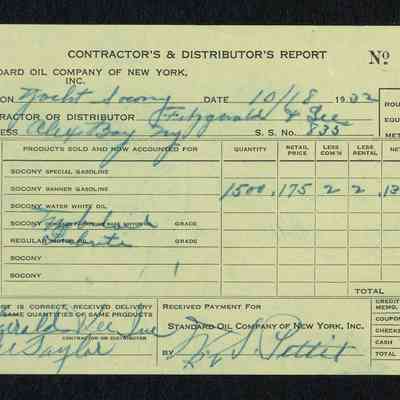 CONTRACTOR'S & DISTRIBUTOR'S REPORT Nº
DARD OIL COMPANY OF NEW YORK, INC.
ON Yacht Socony DATE 10/18 1932
RACTOR OR DISTRIBUTOR Fitzgerald & Lee
ESS Alex Bay Ny S. S. No. 835
ROU
EQUI
MET
PRODUCTS SOLD AND NOW ACCOUNTED FOR QUANTITY RETAIL PRICE LESS COM'N LESS RENTAL NET
SOCONY SPECIAL GASOLINE
SOCONY BANNER GASOLINE 1500 .175 2 2 .13
SOCONY WATER WHITE OIL
GRADE
REGULAR MOTOR OIL GRADE
SOCONY
SOCONY
TOTAL
IS CORRECT, RECEIVED DELIVERY
SAME QUANTITIES OF SAME PRODUCTS
CONTRACTOR OR DISTRIBUTOR
Taylor
RECEIVED PAYMENT FOR
STANDARD OIL COMPANY OF NEW YORK, INC.
BY Wm S. Pettit
CREDIT
MEMO.
COUPON
CHECKS
CASH
TOTAL